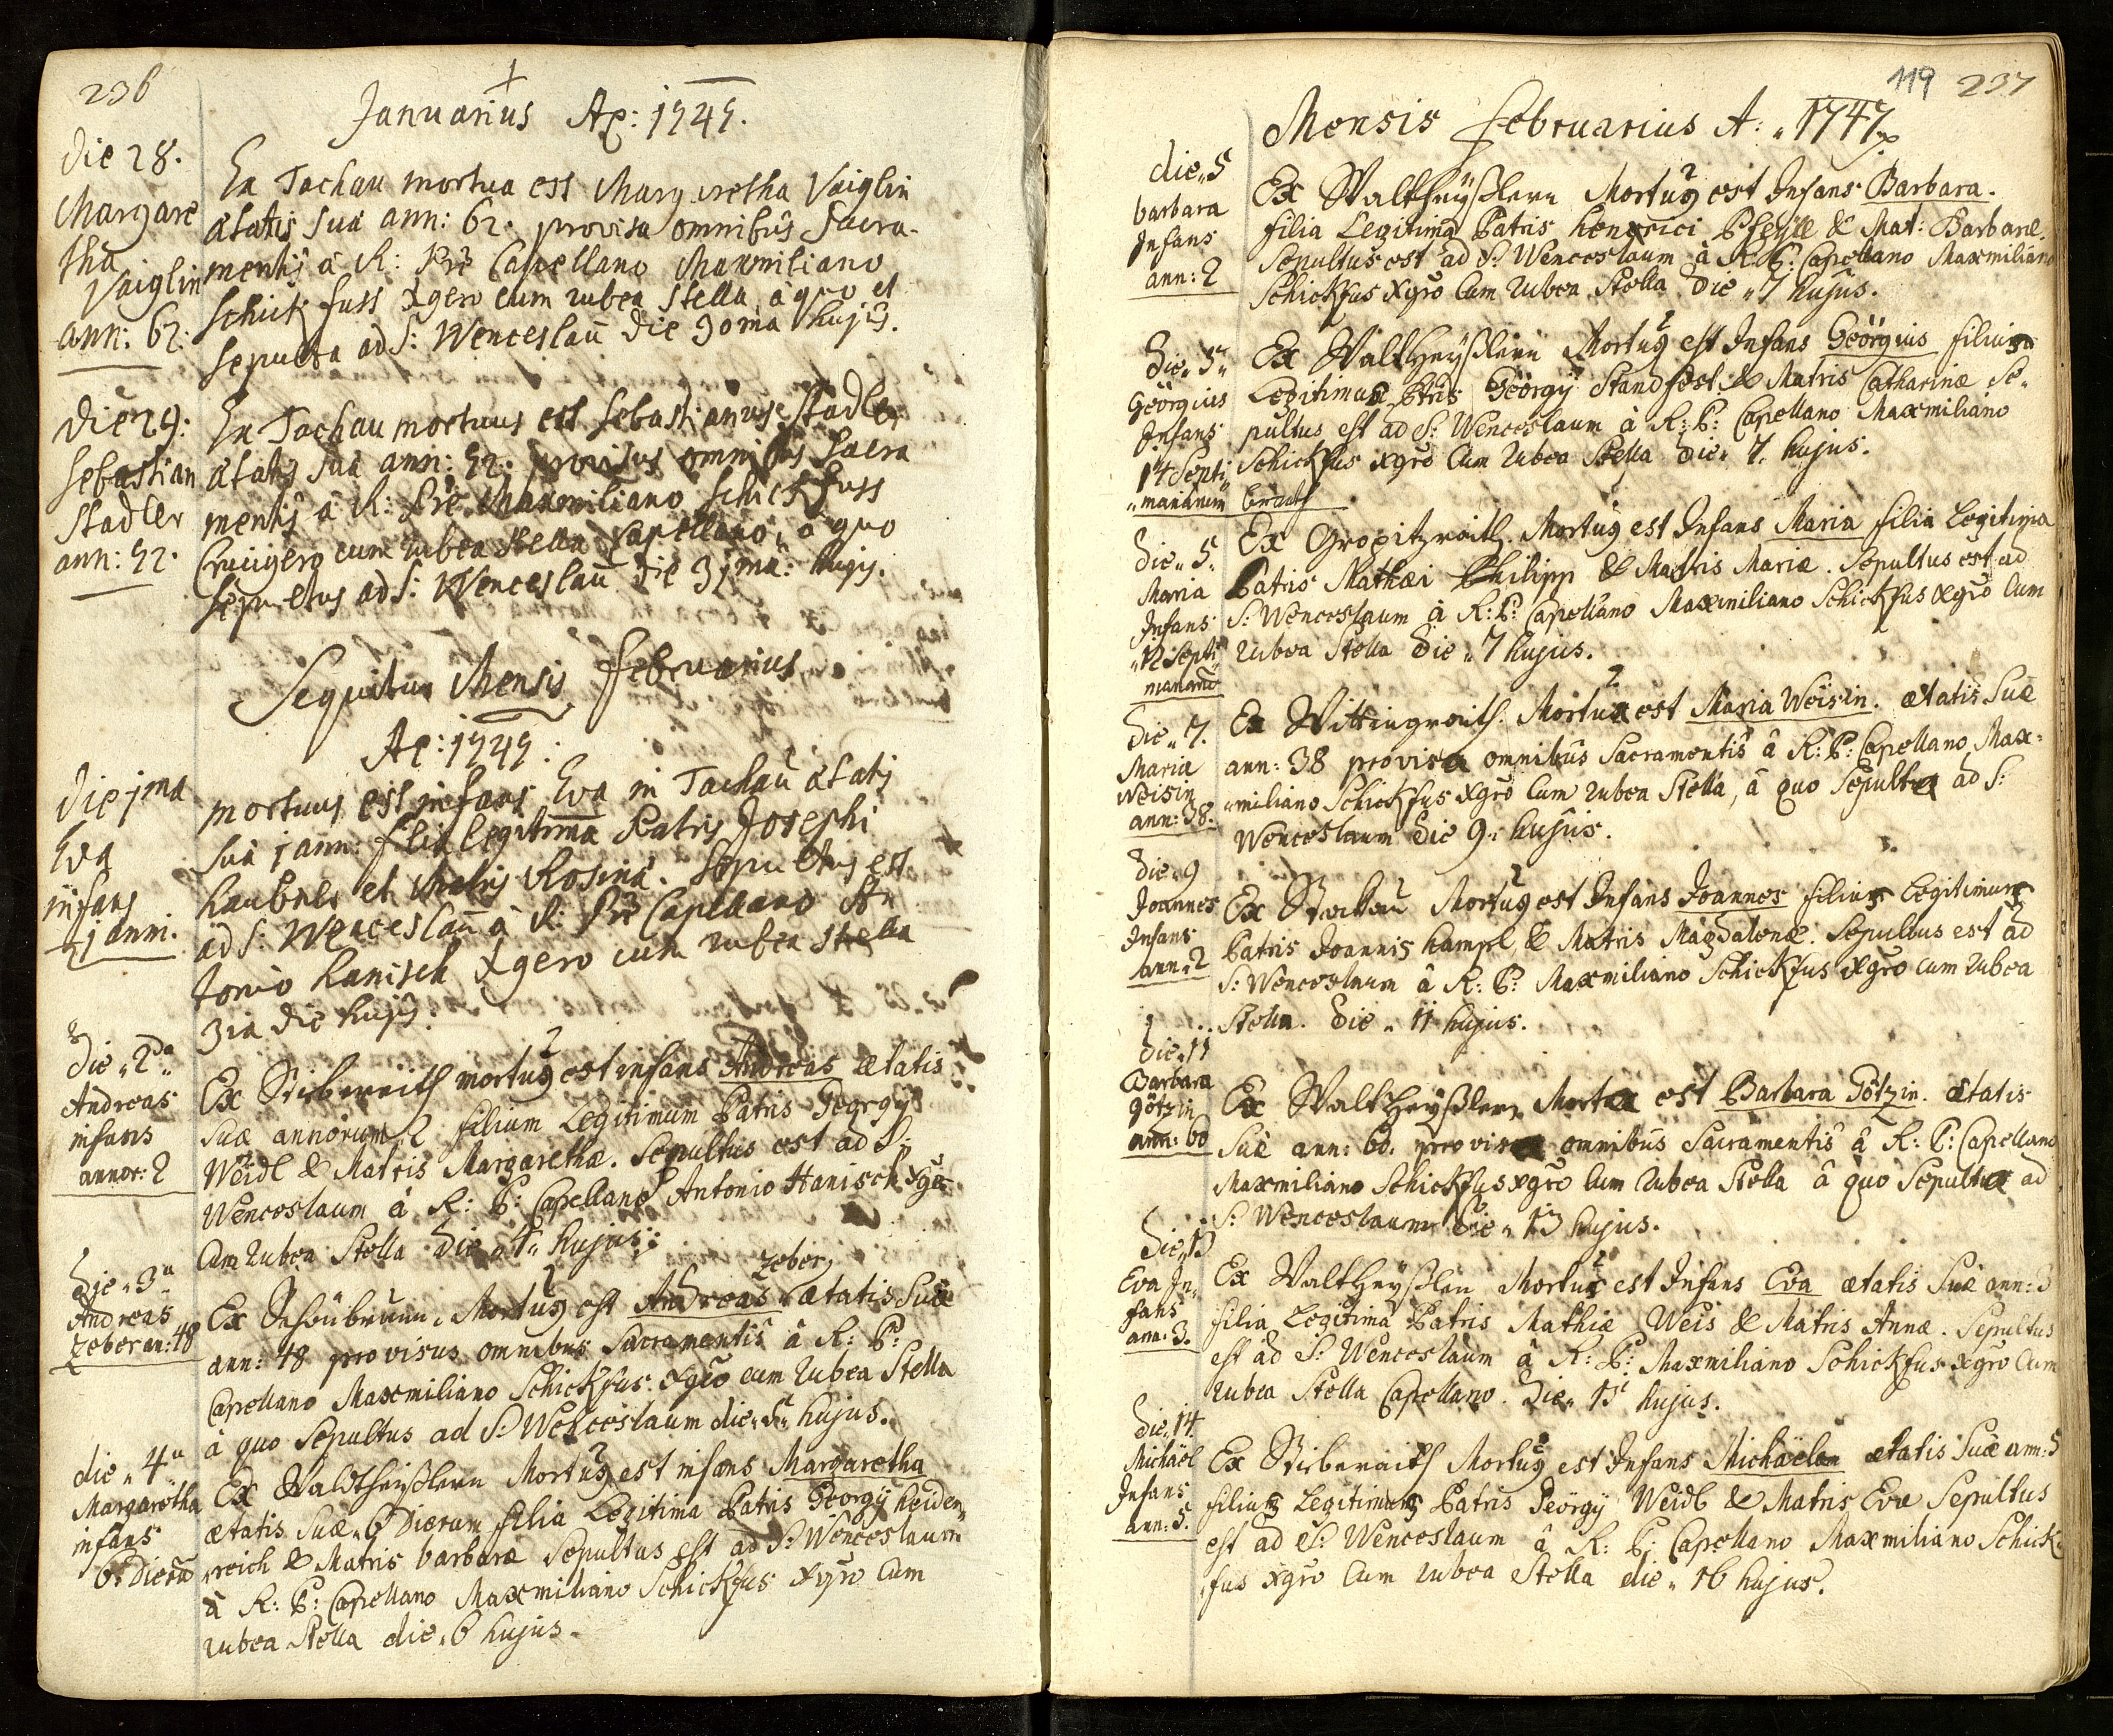 236
Januarius Ao: 1747.
die 28.
Margare
tha
Vaiglin
ann: 62.
Ex Tachau mortua est Margaretha Vaiglin
ætatis suæ ann: 62. provisa omnibus Sacra-
mentis à R: Pre Capellano Maxmiliano
Schick fuss Xgero cum rubea stella, à quo et
sepulta ad S: Wenceslaū die 30ma hujus.
die 29:
Sebastian
Stadler
ann: 72.
Ex Tachau mortuus est Sebastianus Stadler
ætatis suæ ann: 72. provisus omnibus Sacra
mentis à R: Pre Maxmiliano Schickfuss
Crucigero cum rubea stella Capellano, à quo
sepultus ad S: Wenceslaū die 31ma: hujus.
Sequitur Mensis Februarius
Ao: 1747:
die 1ma
Eva
infans
1 anni.
mortuus est infans Eva in Tachau ætatis
suæ 1 ann: filia legitima Patris Josephi
et Matris Rosinæ. Sepultus est
ad S: Wenceslaū à R: Pre Capellano An
tonio Hanisch Xgero cum rubea stella
3ia die hujus.
die „ 2da
Andreas
infans
annor: 2
Ex mortuus est infans Andreas ætatis
Suæ annorum 2 filium Legitimum Patris Georgÿ
Weidl & Matris Margarethæ. Sepultus est ad S:
Wenceslaum à R: P: Capellano Antonio Hanisch Xgro
Cum rubea Stella die „ 4„ hujus:
die „ 3a
Andreas
Zeber an: 48
Zeber
Ex Schönbrunn. Mortuus est Andreas ætatis Suæ
ann: 48 provisus omnibus Sacramentis à R: P:
Capellano Maxmiliano Schickfus Xgro cum rubea Stella
à quo Sepultus ad S: Wenceslaum die „ 5„ hujus.
die „ 4a
Margaretha
infans
6. dierū
Ex Waldtheÿßlern Mortuus est infans Margaretha
ætatis Suæ „ 6 Dierum filia Legitima Patris Georgÿ Heiden„
„reich & Matris barbaræ Sepultus est ad S: Wenceslaum
à R: P: Capellano Maxmiliano Schickfus Xgro Cum
rubea Stella die „ 6 hujus.
119 237
Mensis Februarius A: „ 1747
die „ 5
barbara
Infans
ann: 2
Ex Waltheÿßlern Mortuus est Infans Barbara.
filia Legitima Patris Henrici Pfeÿll & Mat: Barbaræ.
Sepultus est ad S: Wenceslaum à R: P: Capellano Maxmiliano
Schickfus Xgro Cum rubea Stella die „ 7 hujus.
die „ 5„
Geörgius
Infans
14 Septi„
„manarum
Ex Waltheÿßlern Mortuus est Infans Geörgius filius
Legitimus Ptris Geörgÿ Standfest & Matris Catharinæ Se„
pultus est ad S: Wenceslaum à R: P: Capellano Maxmiliano
Schickfus Xgro Cum rubea Stella die „ 7. hujus.
die „ 5.
Maria
Infans
„12 Septi„
manarū
Ex Gropitzraith. Mortuus est Infans Maria filia Legitima
Patris Mathæi Philipp & Matris Mariæ. Sepultus est ad
S: Wenceslaum à R: P: Capellano Maxmiliano Schickfus Xgro Cum
rubea Stella die „ 7 hujus.
die „ 7.
Maria
Weisin
ann: 38.
Ex Wittingraith. Mortua est Maria Weisin. ætatis Suæ
ann: 38 provisa omnibus Sacramentis à R: P: Capellano Max=
„miliano Schickfus Xgro Cum rubea Stella, à quo Sepulta ad S:
Wenceslaum die 9„ hujus.
die „ 9
Joannes
Infans
ann: 2
Ex Mortuus est Infans Joannes filius Legitimus
Patris Joannis Hampl & Matris Magdalenæ. Sepultus est ad
S: Wenceslaum à R: P: Maxmiliano Schickfus Xgro cum rubea
Stella. die „ 11 hujus.
die „ 11
Barbara
Götzin
ann: 60
Ex Waltheÿßlern Mortua est Barbara Götzin. ætatis
Suæ ann: 60. provisa omnibus Sacramentis à R: P: Capellano
Maxmiliano Schickfus Xgro Cum rubea Stella à quo Sepulta ad
S: Wenceslaum die „ 13 hujus.
die „ 13
Eva In„
fans
ann: 3.
Ex Waltheÿßlern Mortuus est Infans Eva ætatis Suæ ann: 3
filia Legitima Patris Mathiæ Weis & Matris Annæ. Sepultus
est ad S: Wenceslaum à R: P: Maxmiliano Schickfus Xgro Cum
rubea Stella Capellano. die „ 15 hujus.
die „ 14.
Michäel
Infans
ann: 5.
Ex Mortuus est Infans Michäel ætatis Suæ ann: 5
filius Legitimus Patris Geörgÿ Weidl & Matris Evæ Sepultus
est ad S: Wenceslaum à R: P: Capellano Maxmiliano Schick„
„fus Xgro Cum rubea Stella die „ 16 hujus.